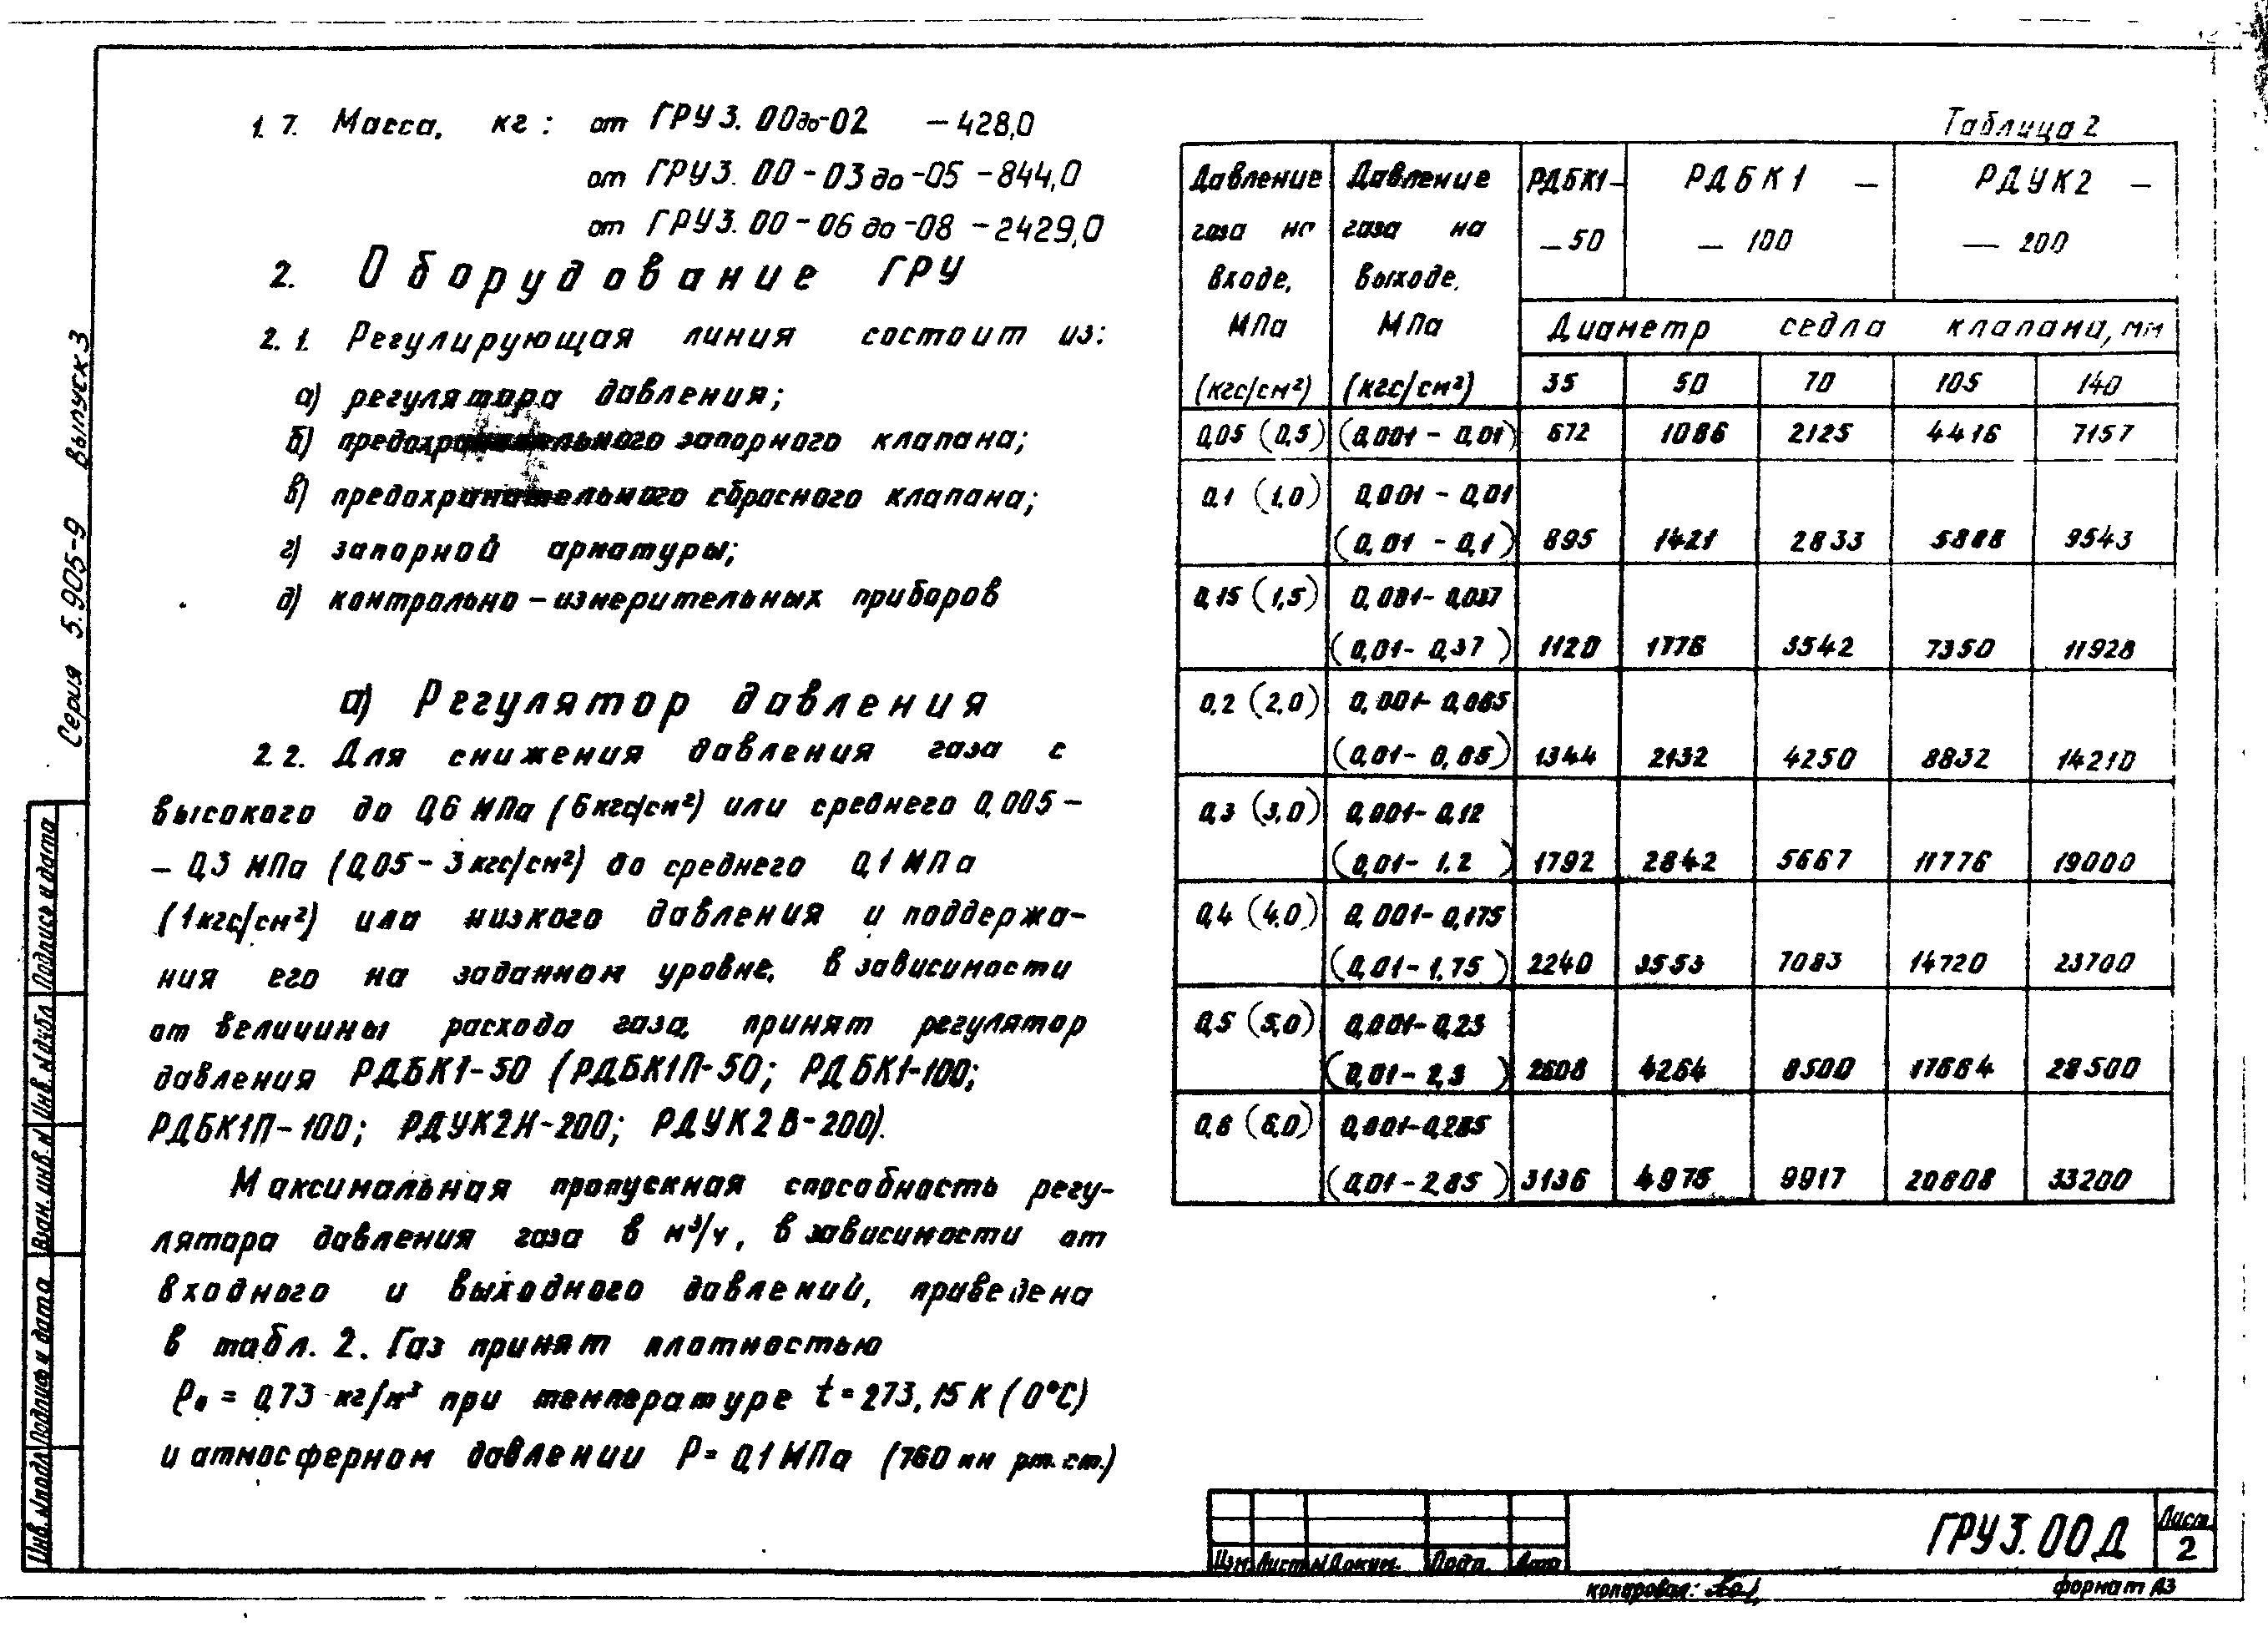 1.7. Масса, кг: от ГРУ3.00 до -02 – 428,0
от ГРУ3.00-03 до -05 – 844,0
от ГРУ3.00-06 до -08 – 2429,0
2. Оборудование ГРУ
2.1. Регулирующая линия состоит из:
а) регулятора давления;
б) предохранительного запорного клапана;
в) предохранительного сбросного клапана;
г) запорной арматуры;
д) контрольно-измерительных приборов
а) Регулятор давления
2.2. Для снижения давления газа с
высокого до 0,6 МПа (6 кгс/см²) или среднего 0,005 –
– 0,3 МПа (0,05 – 3 кгс/см²) до среднего 0,1 МПа
(1 кгс/см²) или низкого давления и поддержа-
ния его на заданном уровне, в зависимости
от величины расхода газа, принят регулятор
давления РДБК1-50 (РДБК1П-50; РДБК1-100;
РДБК1П-100; РДУК2Н-200; РДУК2В-200).
Максимальная пропускная способность регу-
лятора давления газа в м³/ч, в зависимости от
входного и выходного давлений, приведена
в табл. 2. Газ принят плотностью
ρ₀ = 0,73 кг/м³ при температуре t = 273,15 К (0°С)
и атмосферном давлении Р = 0,1 МПа (760 мм рт. ст.)
Таблица 2
Давление Давление РДБК1- РДБК1 – РДУК2 –
газа на газа на –50 – 100 – 200
входе, выходе,
МПа МПа Диаметр седла клапана, мм
(кгс/см²) (кгс/см²) 35 50 70 105 140
0,05 (0,5) (0,001 – 0,01) 672 1086 2125 4416 7157
0,1 (1,0) 0,001 – 0,01
(0,01 – 0,1) 895 1421 2833 5888 9543
0,15 (1,5) 0,001 – 0,037
(0,01 – 0,37) 1120 1776 3542 7350 11928
0,2 (2,0) 0,001 – 0,085
(0,01 – 0,85) 1344 2132 4250 8832 14210
0,3 (3,0) 0,001 – 0,12
(0,01 – 1,2) 1792 2842 5667 11776 19000
0,4 (4,0) 0,001 – 0,175
(0,01 – 1,75) 2240 3553 7083 14720 23700
0,5 (5,0) 0,001 – 0,23
(0,01 – 2,3) 2608 4264 8500 17664 28500
0,6 (6,0) 0,001 – 0,285
(0,01 – 2,85) 3136 4975 9917 20608 33200
Серия 5.905-9 Выпуск 3
Подпись и дата
Инв. № дубл
Взам. инв. №
Подпись и дата
Инв. № подл
Изм Лист № докум. Подп. Дата
ГРУ3.00Д
Лист
2
копировал:
формат А3